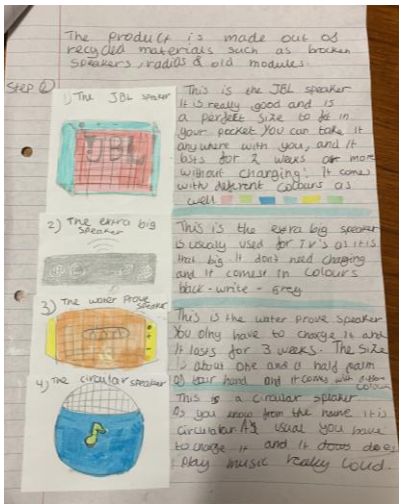 The product is made out of
recycled materials such as brocken
speakers, radias & old modules.
Step 2
1) The JBL speaker
JBL
This is the JBL speaker
it is really good and is
a perfekt size to fit in
your pocket. You can take it
anywhere with you, and it
lasts for 2 weeks or more
without charging! It comes
with deferent colours as
well
2) The extra big
speaker
This is the extra big speaker
is usualy used for TV's as it is
that big It don't need charging
and it comes in colours
back - write - grey
3) The water prove
speaker
This is the water prove speaker
You olny have to charge it and
it lasts for 3 weeks. The size
is about one and a half palm
of your hand and it comes with
colours
4) The circular speaker
This is a circular speaker
As you know from the name it is
circulatar. As usual you have
to charge it and it does
play music realy loud.